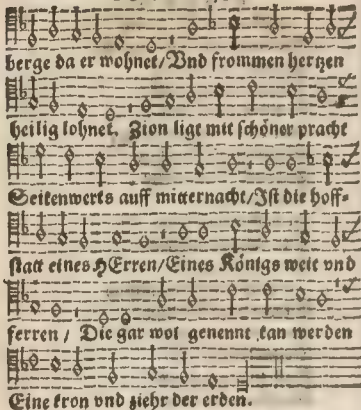 berge da er wohnet/Vnd frommen hertzen
heilig lohnet. Zion ligt mit schöner pracht
Seitenwerts auff mitternacht/Ist die hoff-
statt eines HErren/Eines Königs weit vnd
ferren / Die gar wol genennt kan werden
Eine kron vnd ziehr der erden.